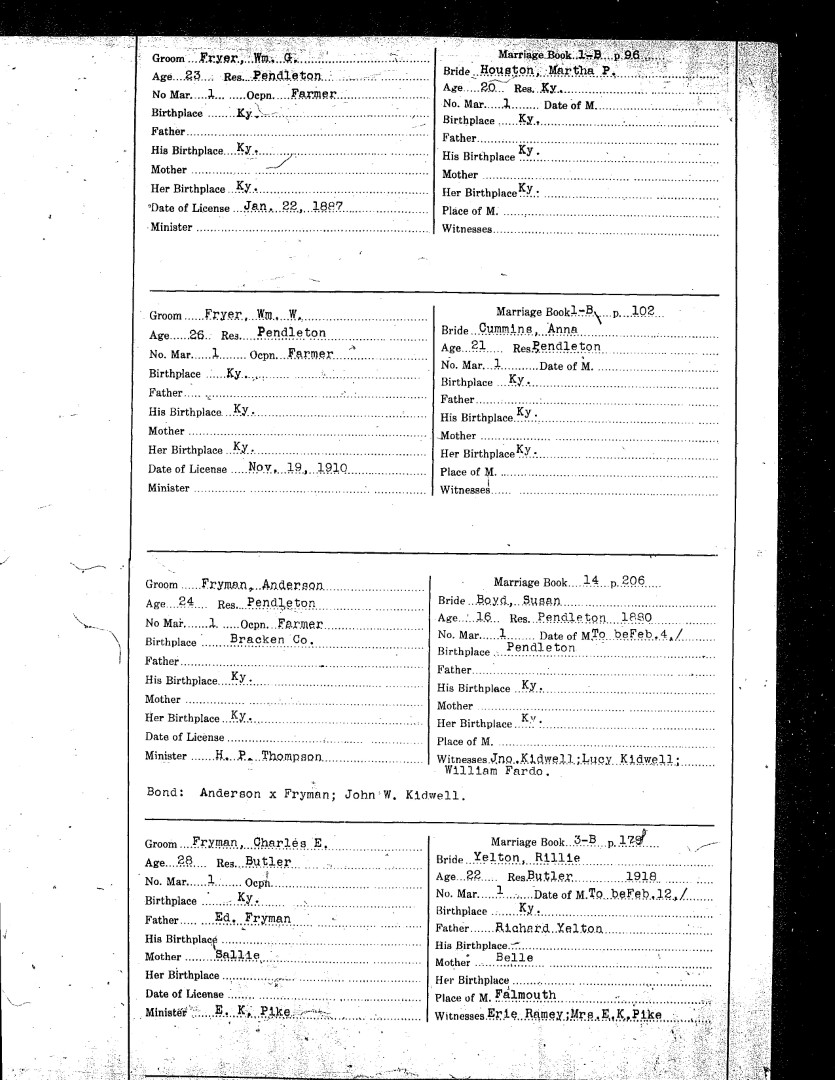 Groom Fryer, Wm. G.
Age 23 Res. Pendleton
No Mar. 1 Ocpn. Farmer
Birthplace Ky.
Father
His Birthplace Ky.
Mother
Her Birthplace Ky.
Date of License Jan. 22, 1887
Minister
Marriage Book 1-B p. 96
Bride Houston, Martha P.
Age 20 Res. Ky.
No. Mar. 1 Date of M.
Birthplace Ky.
Father
His Birthplace Ky.
Mother
Her Birthplace Ky.
Place of M.
Witnesses
Groom Fryer, Wm. W.
Age 26 Res. Pendleton
No. Mar. 1 Ocpn. Farmer
Birthplace Ky.
Father
His Birthplace Ky.
Mother
Her Birthplace Ky.
Date of License Nov. 19, 1910
Minister
Marriage Book 1-B p. 102
Bride Cummins, Anna
Age 21 Res. Pendleton
No. Mar. 1 Date of M.
Birthplace Ky.
Father
His Birthplace Ky.
Mother
Her Birthplace Ky.
Place of M.
Witnesses
Groom Fryman, Anderson
Age 24 Res. Pendleton
No Mar. 1 Ocpn. Farmer
Birthplace Bracken Co.
Father
His Birthplace Ky.
Mother
Her Birthplace Ky.
Date of License
Minister H. P. Thompson
Marriage Book 14 p. 206
Bride Boyd, Susan
Age 16 Res. Pendleton 1880
No. Mar. 1 Date of M. To be Feb. 4,/
Birthplace Pendleton
Father
His Birthplace Ky.
Mother
Her Birthplace Ky.
Place of M.
Witnesses Jno. Kidwell; Lucy Kidwell;
William Fardo.
Bond: Anderson x Fryman; John W. Kidwell.
Groom Fryman, Charles E.
Age 28 Res. Butler
No. Mar. 1 Ocpn.
Birthplace Ky.
Father Ed. Fryman
His Birthplace
Mother Sallie
Her Birthplace
Date of License
Minister E. K. Pike
Marriage Book 3-B p.
Bride Yelton, Rillie
Age 22 Res. Butler 1918
No. Mar. 1 Date of M. To be Feb. 12,/
Birthplace Ky.
Father Richard Yelton
His Birthplace
Mother Belle
Her Birthplace
Place of M. Falmouth
Witnesses Erie Ramey; Mrs. E. K. Pike